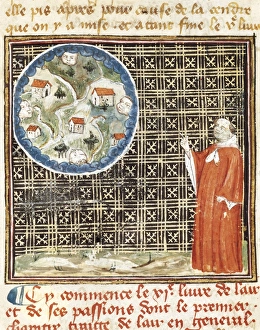 elle pis apres pour cause de la cendre
que on y a mise cet a tant fine le xe livre
Cy commence le xie livre de laer
et de ses passions dont le premier
chapitre traitte de laer en general